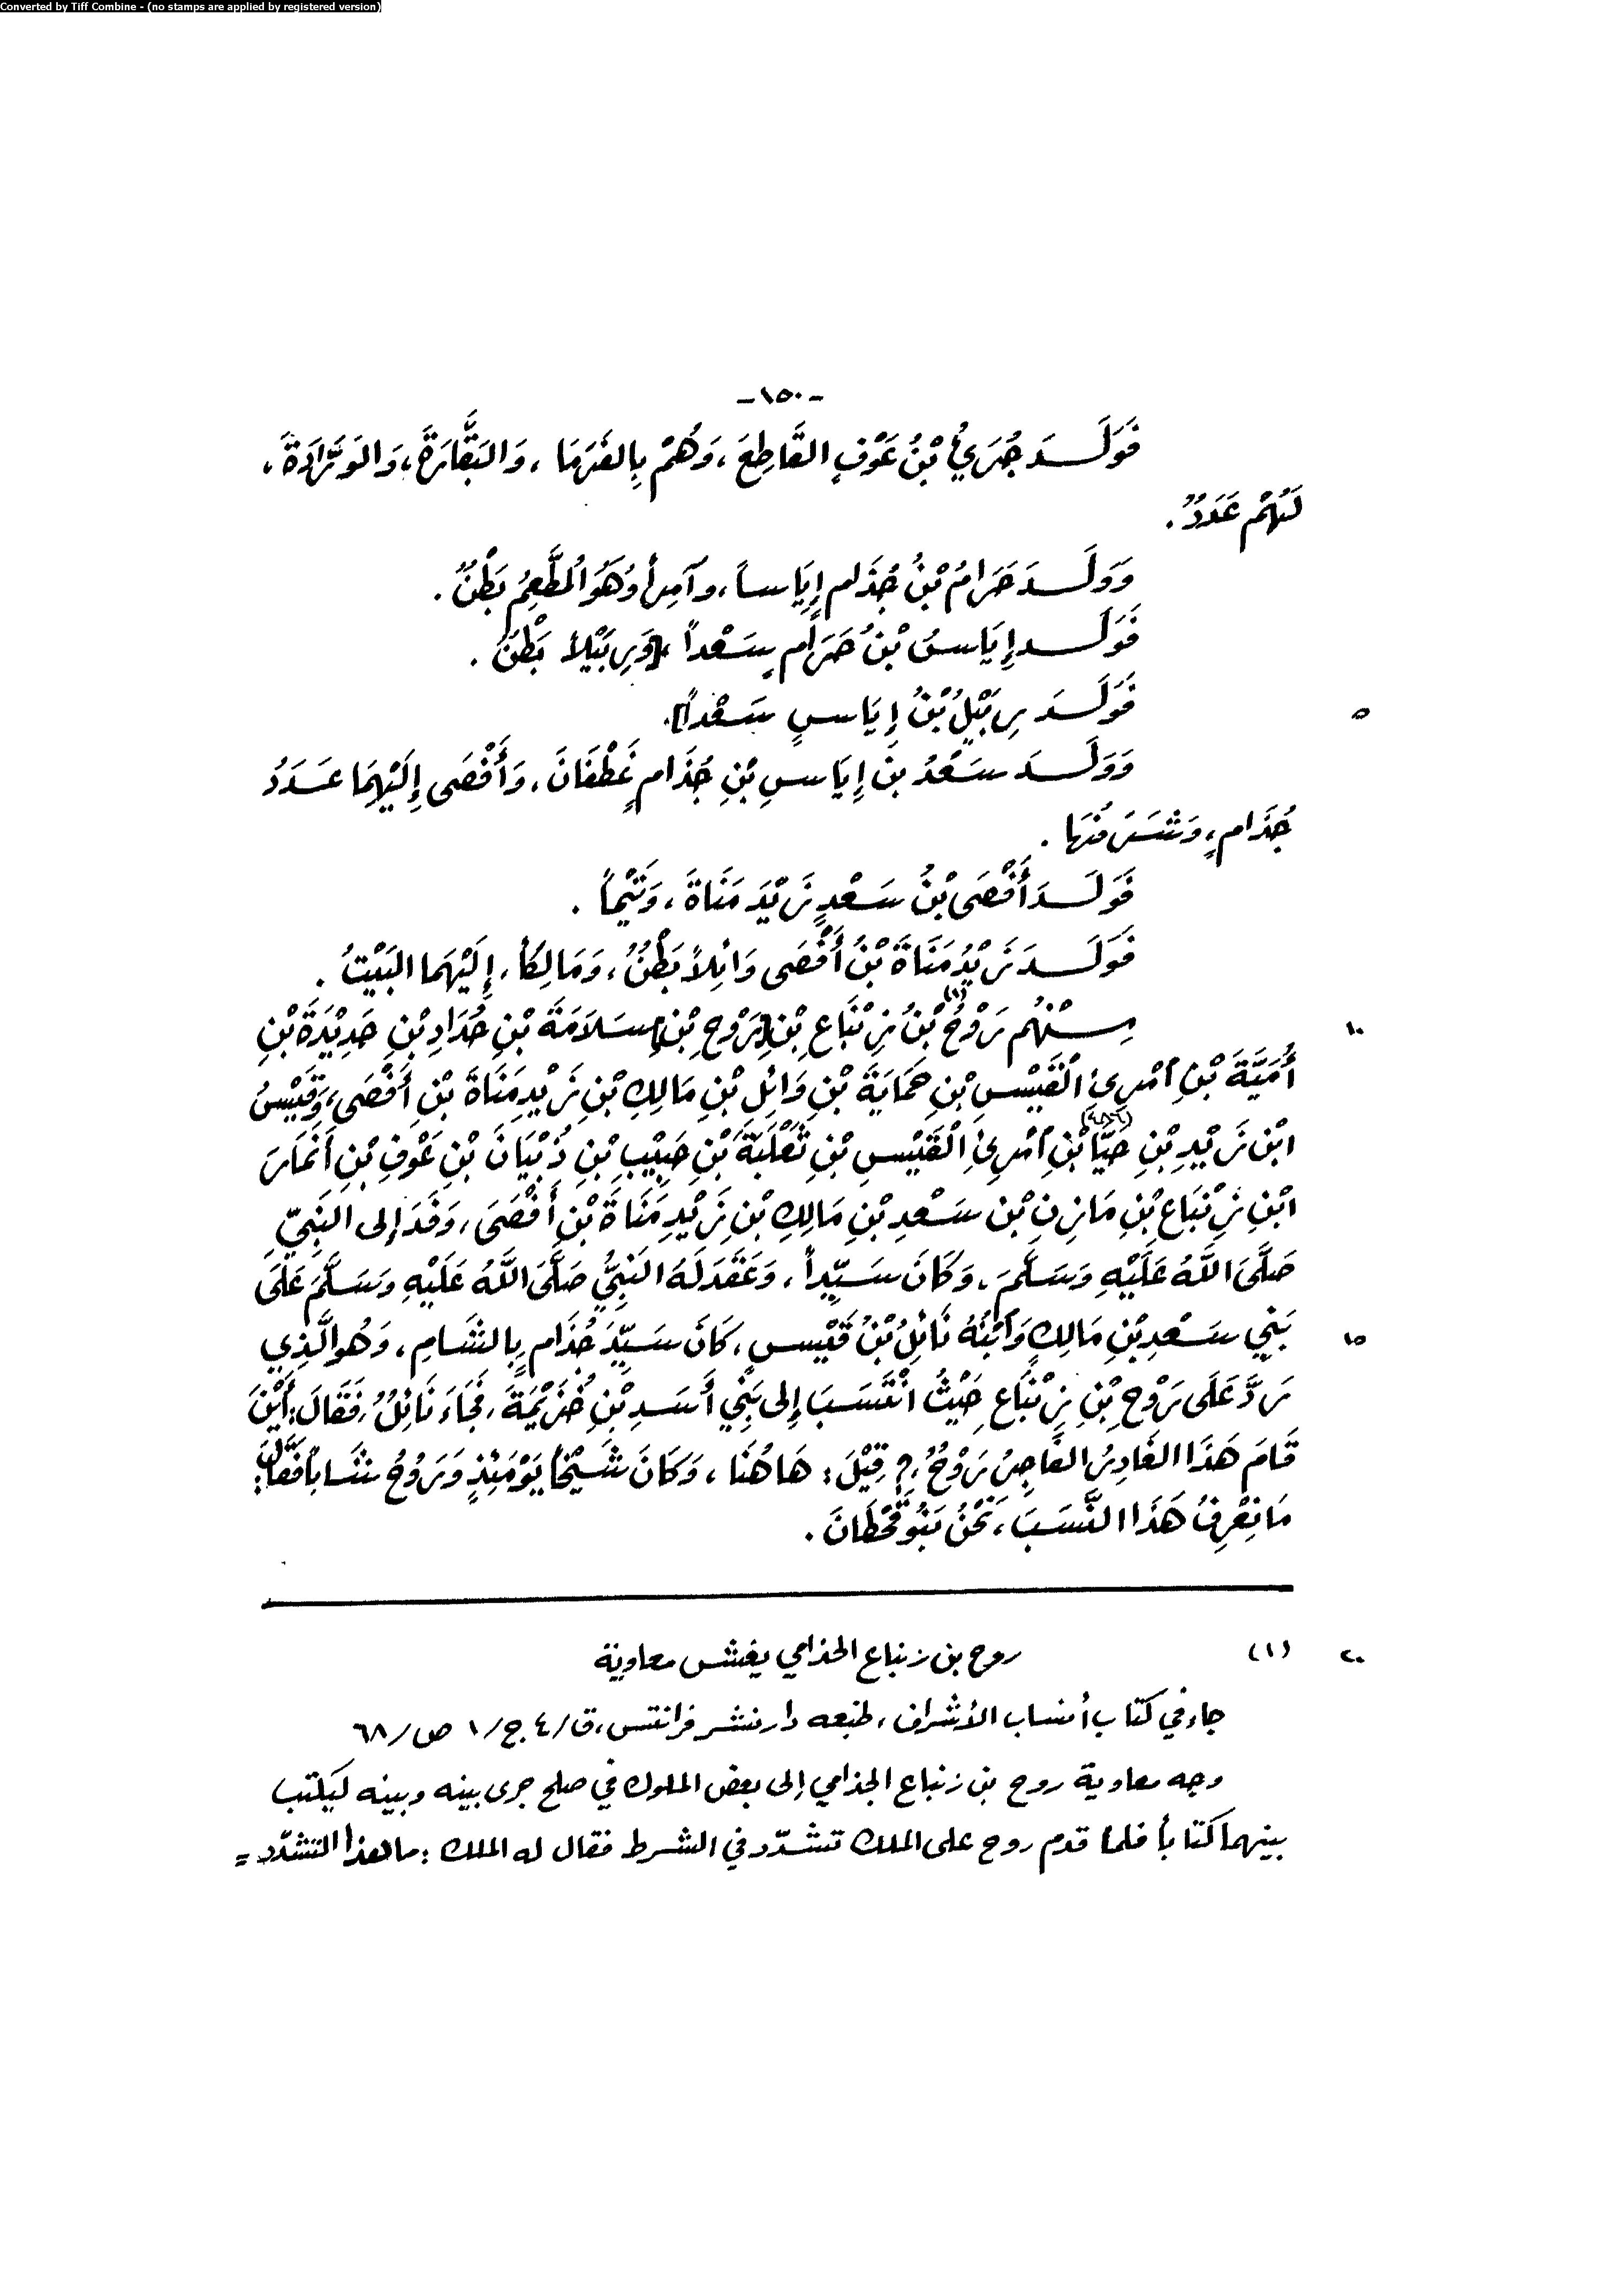 Converted by Tiff Combine - (no stamps are applied by registered version)
-١٥٠-
فَوَلَدَ جُرَيُّ بْنُ عَوْفٍ القَاطِعَ، وَهُمْ بِالفَرَمَا، وَالبَقَّارَةَ، وَالوَرَّادَةَ،
لَهُمْ عَدَدٌ.
وَوَلَدَ حَرَامُ بْنُ جُذَامٍ إِيَاساً، وَآمِراً وَهُوَ المُطْعِمُ بَطْنٌ.
فَوَلَدَ إِيَاسُ بْنُ حَرَامٍ سَعْداً، [وَرِبَيْلاً بَطْنٌ.
فَوَلَدَ رِبَيْلُ بْنُ إِيَاسٍ سَعْداً].
٥
وَوَلَدَ سَعْدُ بنُ إِيَاسِ بْنِ جُذَامٍ غَطْفَانَ، وَأَفْصَى إِلَيْهِمَا عَدَدُ
جُذَامٍ، وَشَرَفُهَا.
فَوَلَدَ أَفْصَى بْنُ سَعْدٍ زَيْدَ مَنَاةَ، وَتَيْماً.
فَوَلَدَ زَيْدُ مَنَاةَ بْنُ أَفْصَى وَائِلاً بَطْنٌ، وَمَالِكاً، إِلَيْهِمَا البَيْتُ.
مِنْهُم رَوْحُ (١) بْنُ زِنْبَاعِ بْنِ [رَوْحِ بْنِ] سَلَامَةَ بْنِ حُدَادِ بْنِ حَدِيْدَةَ بْنِ
١٠
أُمَيَّةَ بْنِ امْرِئِ الْقَيْسِ بْنِ حَمَايَةَ بْنِ وَائِلِ بْنِ مَالِكِ بْنِ زَيْدِ مَنَاةَ بْنِ أَفْصَى، وَقَيْسُ
ابْنُ زَيْدِ بْنِ حَيَّا بْنِ امْرِئِ الْقَيْسِ بْنِ ثَعْلَبَةَ بْنِ حَبِيْبِ بْنِ ذُبْيَانَ بْنِ عَوْفِ بْنِ أَنْمَارَ
ابْنِ زِنْبَاعِ بْنِ مَازِنِ بْنِ سَعْدِ بْنِ مَالِكِ بْنِ زَيْدِ مَنَاةَ بْنِ أَفْصَى، وَفَدَ إِلى النَبِيِّ
صَلَّى اللَّهُ عَلَيْهِ وَسَلَّمَ، وَكَانَ سَيِّداً، وَعَقَدَ لَهُ النَبِيُّ صَلَّى اللَّهُ عَلَيْهِ وَسَلَّمَ عَلَى
بَنِي سَعْدِ بْنِ مَالِكٍ وَابْنُهُ نَائِلُ بْنُ قَيْسٍ، كَانَ سَيِّدَ جُذَامٍ بِالشَامِ، وَهُو الَّذِي
١٥
رَدَّ عَلَى رَوْحِ بْنِ زِنْبَاعِ حَيْثُ انْتَسَبَ إِلى بَنِي أَسَدِ بْنِ خُزَيْمَةَ، فَجَاءَ نَائِلُ، فَقَالَ: أَيْنَ
قَامَ هَذَا الغَادِرُ الفَاجِرُ رَوْحُ،؟ قِيْلَ: هَا هُنَا، وَكَانَ شَيْخاً يَوْمَئِذٍ وَرَوْحُ شَابّاً فَقَالَ:
مَا نَعْرِفُ هَذَا النَّسَبَ، نَحْنُ بَنُو قَحْطَانَ.
(١) روح بن زنباع الجذامي يغش معاوية
٢٠
جاء في كتاب أنساب الأشراف، طبعه دار نشر فرانتس، ق/٤ ج/١ ص/٦٨
وجه معاوية روح بن زنباع الجذامي إلى بعض الملوك في صلح جرى بينه وبينه ليكتب
بينهما كتاباً فلما قدم روح على الملك تشدّد في الشرط فقال له الملك: ما هذا التشدّد =